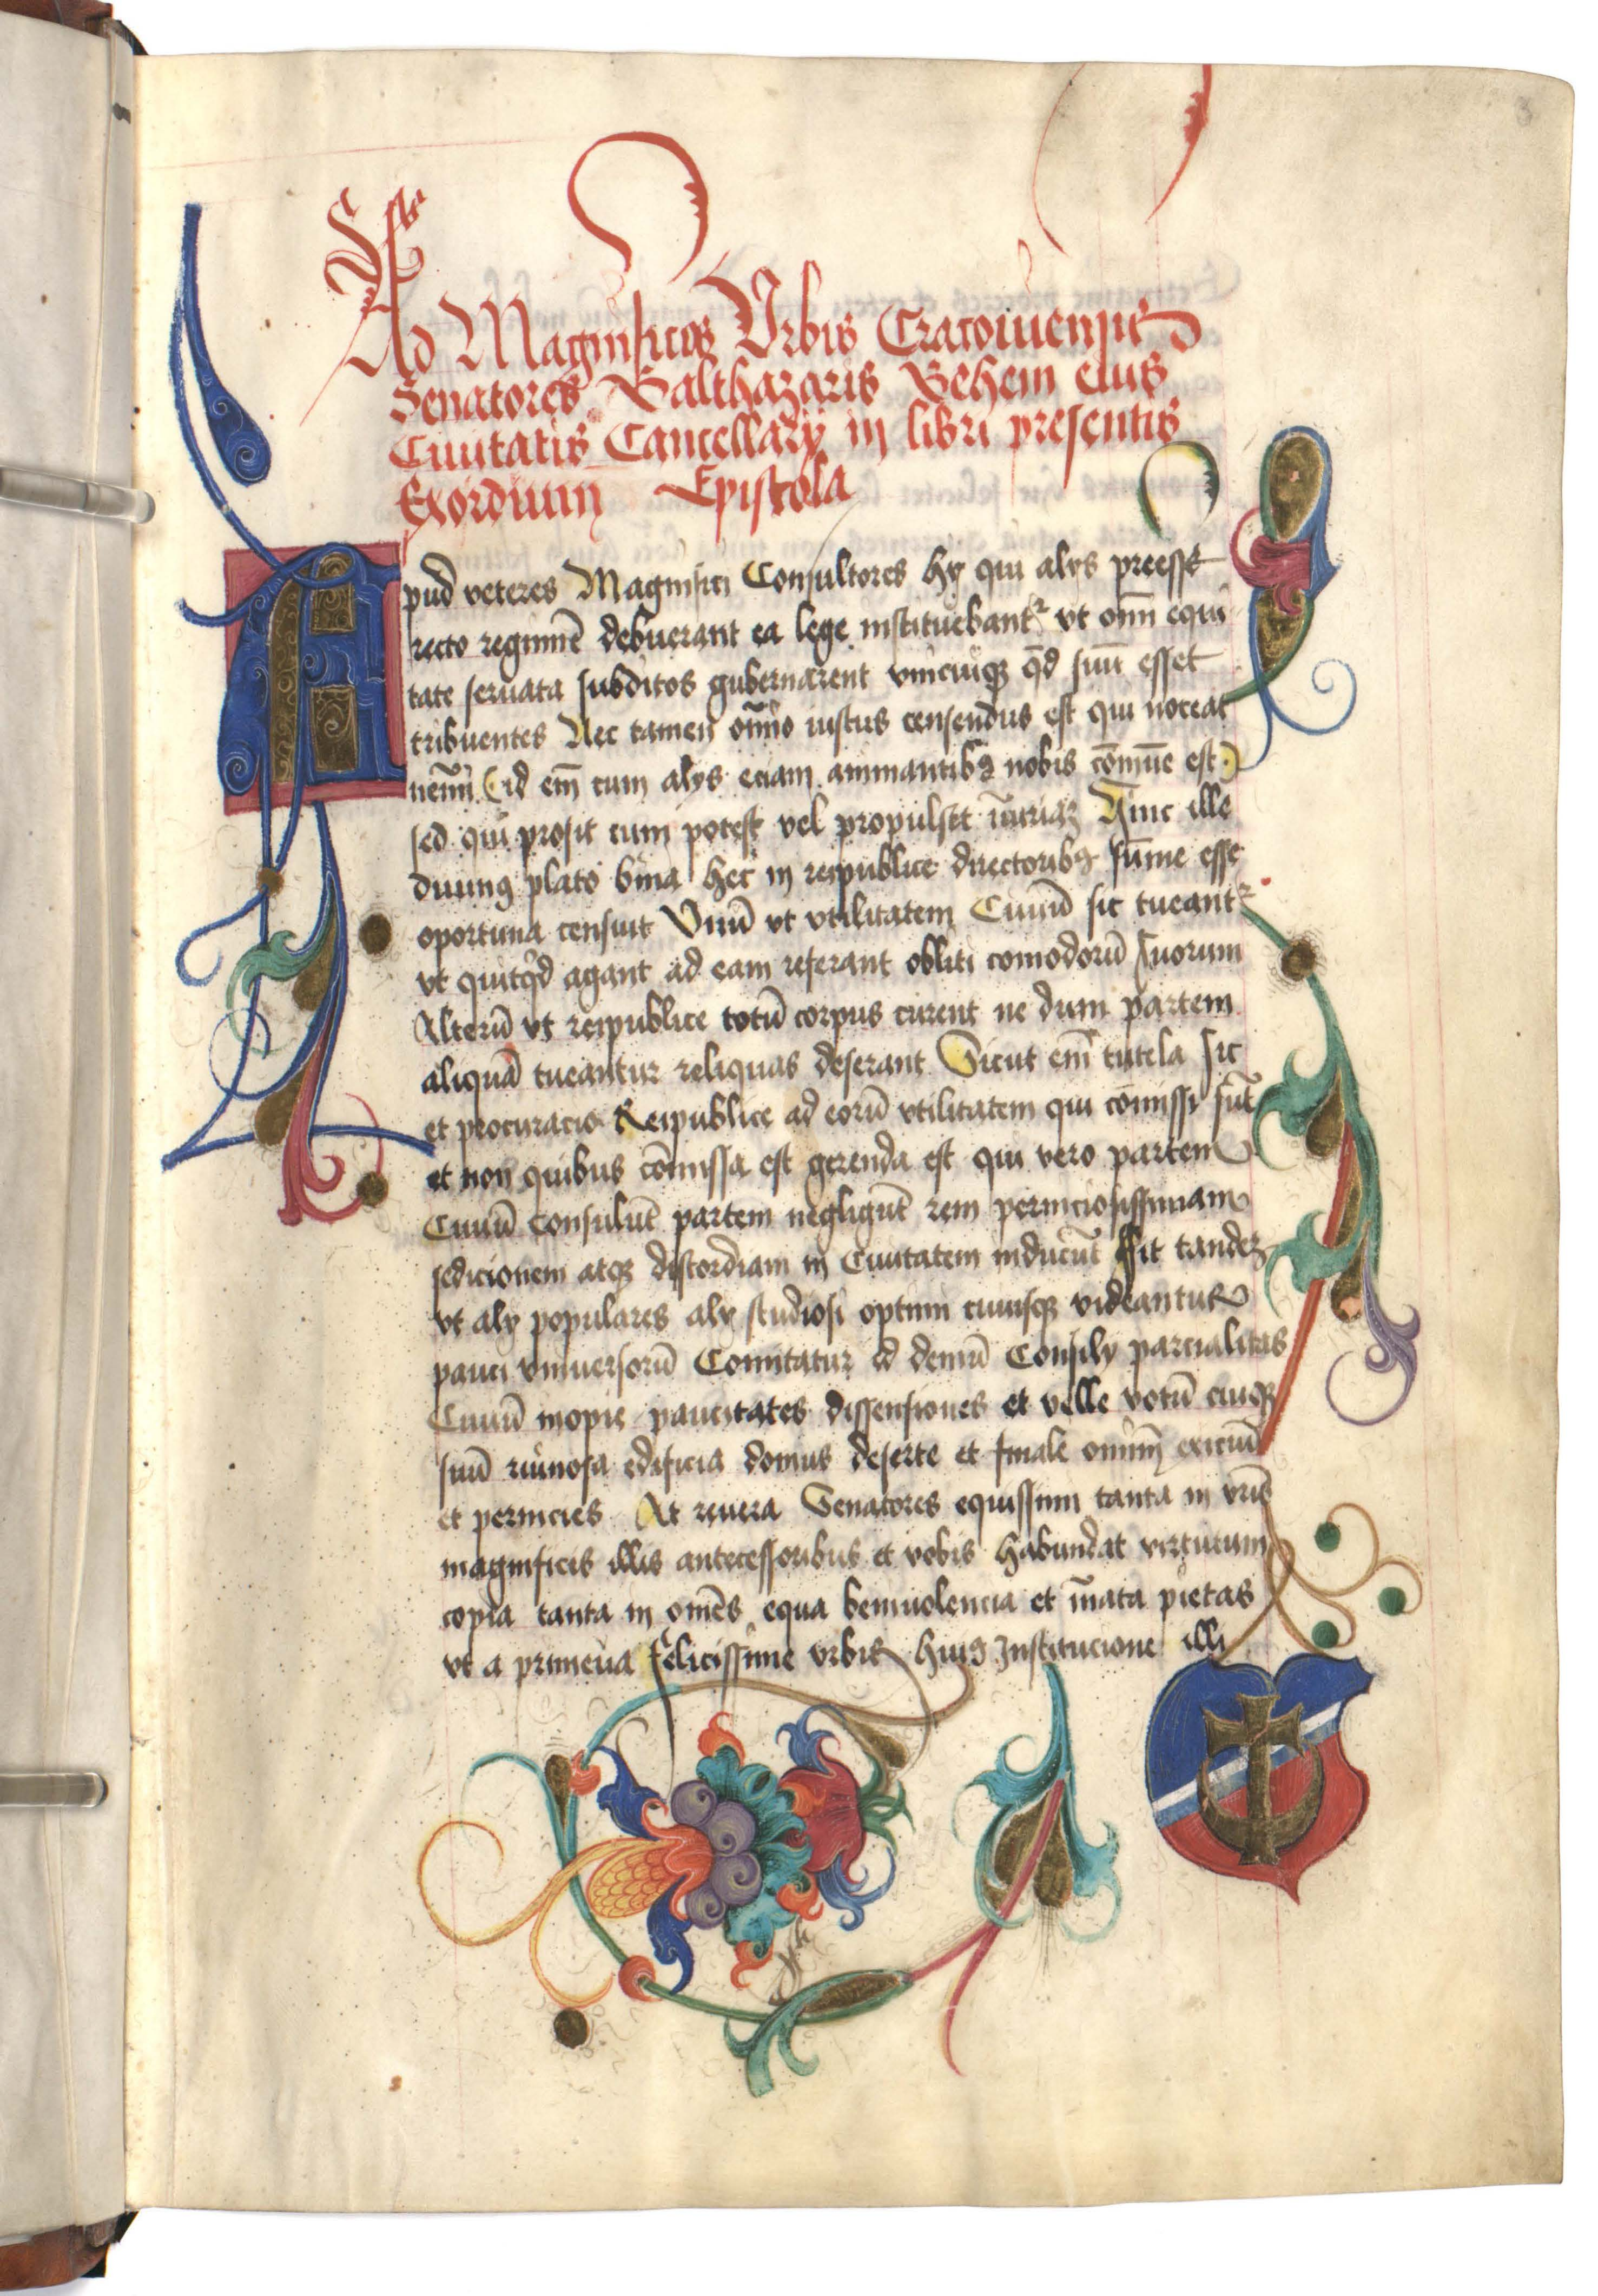 3
Ad Magnificos Vrbis Cracouiensis
Senatores Balthazaris Behem eius
Ciuitatis Cancellarÿ in libri presentis
Exordium Epistola
Apud veteres Magnifici Consultores hÿ qui alÿs preesse
recto regimīe debuerant ea lege instituebant᷑ vt om̄i equi
tate seruata subditos gubernarent vnicuiqꝫ qd̄ suū esset
tribuentes Nec tamen om̄īo iustus censendus est qui noceat
nem̄i (id em̄ cum alÿs eciam animantibꝫ nobis cōmūe est)
sed qui prosit cum potest vel propulset iniuriaꝫ Hinc ille
diuinꝰ plato bina hec in reipublice directoribꝫ sūme esse
oportuna censuit Vnū vt vtilitatem Ciuiū sic tueant᷑
vt quitqd̄ agant ad eam referant obliti comodorū suorum
Alterū vt reipublice totū corpus curent ne dum partem
aliquā tueantur reliquas deserant Sicut em̄ tutela sic
et procuracio Reipublice ad eorū vtilitatem qui cōmissi sūt
et non quibus cōmissa est gerenda est qui vero partem
Ciuiū consulūt partem negligūt rem perniciosissimam
sedicionem atqꝫ discordiam in Ciuitatem inducūt Fit tandeꝫ
vt alÿ populares alÿ studiosi optimi cuiusqꝫ videantur
pauci vniuersorū Comitatur id demū Consilÿ parcialitas
Ciuiū inopie paucitates dissensiones et velle votū cuiqꝫ
suū ruinosa edificia domus deserte et finale omniū exiciū
et pernicies At reuera Senatores equissimi tanta in vr̄is
magnificis illis antecessoribus et vobis habundat virtutum
copia tanta in omēs equa beniuolencia et īnata pietas
vt a primeua felicissime vrbis huiꝰ Institucione illi